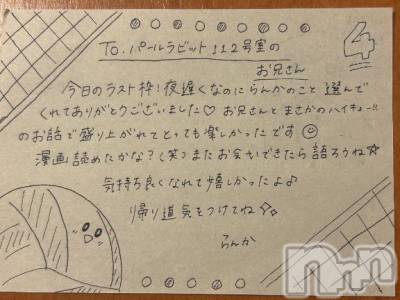 To.パールラビット112号室の
お兄さん
4
今日のラスト枠!夜遅くなのにらんかのこと選んで
くれてありがとうございました♡お兄さんとまさかのハイキュー!!
のお話で盛り上がれてとっても楽しかったです☺
漫画読めたかな?(笑)またお会いできたら語ろうね☆
気持ち良くなれて嬉しかったよ♪
帰り道気をつけてね
らんか